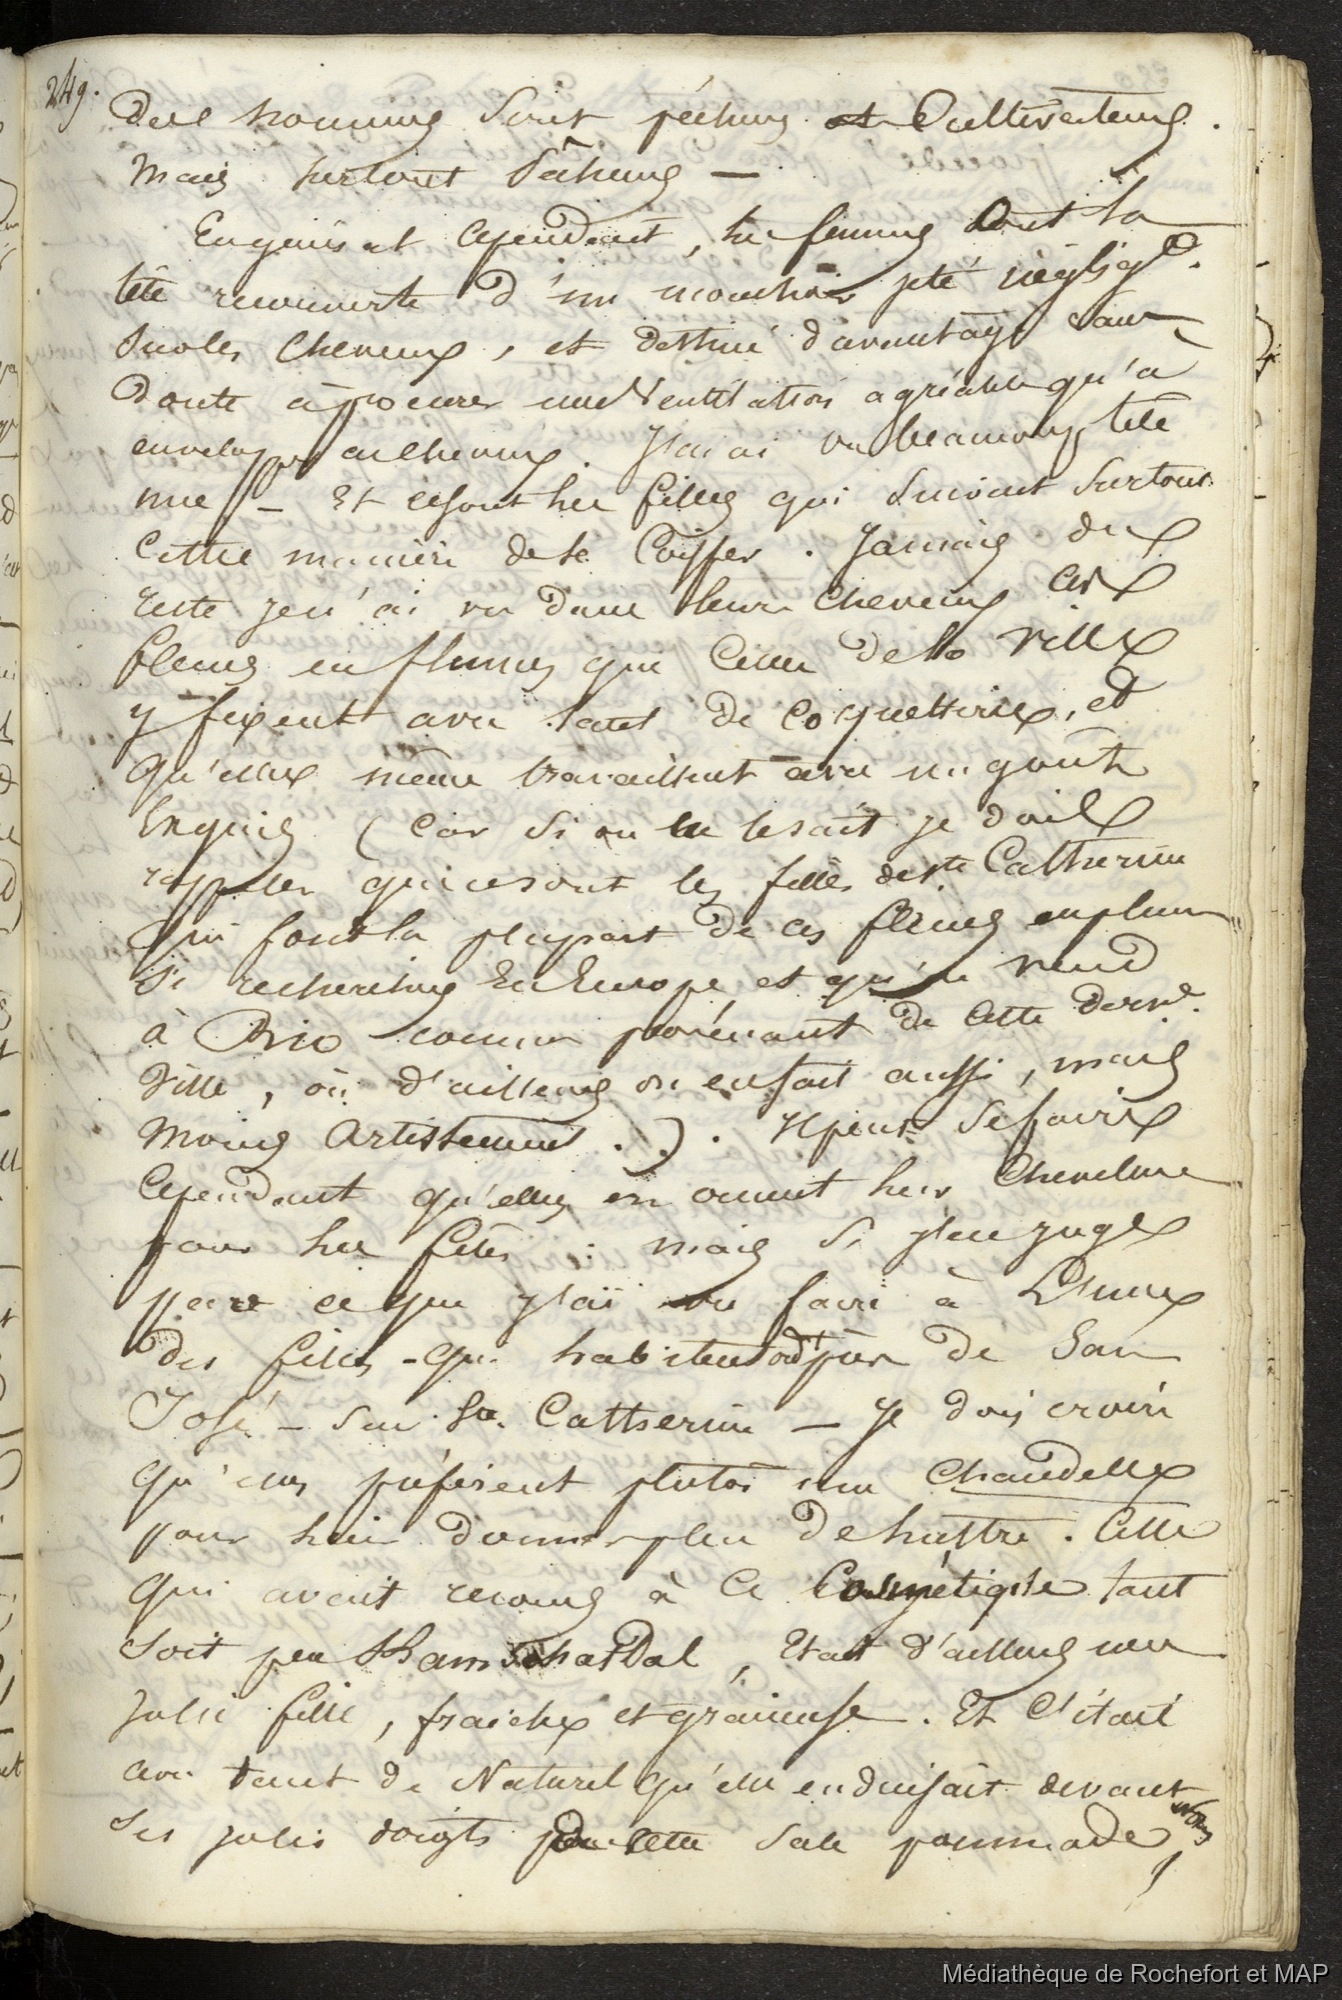 249.
Des hommes sont pêcheurs et Cultivateurs.
Mais surtout Pêcheurs —
En général cependant, les femmes Ont la
tête recouverte d'un mouchoir jeté néglig^t.
sur les cheveux, et destiné d'avantage sans
doute à procurer une Ventilation agréable qu'à
envelopper cheveux. J'en ai vu beaucoup tête
nue — Et ce sont les filles qui suivent surtout
Cette manière de se Coiffer. Jamais du
reste je n'ai vu dans leurs cheveux ces
fleurs en plumes que celles de la Ville
y fixent avec tant de coquetterie, et
qu'elles même travaillent avec un goût
Exquis (Car si on le sait je dois
rappeler que ce sont les filles de S^te Catherine
qui font la plupart de ces fleurs en plumes
si recherchées En Europe et qu'on vend
à Rio comme provenant de cette dern^e.
Ville, où d'ailleurs on en fait aussi, mais
moins Artistement.). Il peut se faire
Cependant qu'elles en ornent leur Chevelure
pour les fêtes : mais si j'en juge
par ce que j'ai vu faire à
des filles qui habitent près de San
José — sur S^te. Catherine — Je dois croire
qu'elles préfèrent plutôt une Chandelle
pour leur donner plus de lustre. Celle
qui avait recours à ce Cosmétique tant
soit peu Kamschatdal, Etait d'ailleurs une
jolie fille, fraiche et gracieuse. Et C'était
avec tant de Naturel qu'elle enduisait devant nous
ses jolis doigts de cette sale pommade,
Médiathèque de Rochefort et MAP